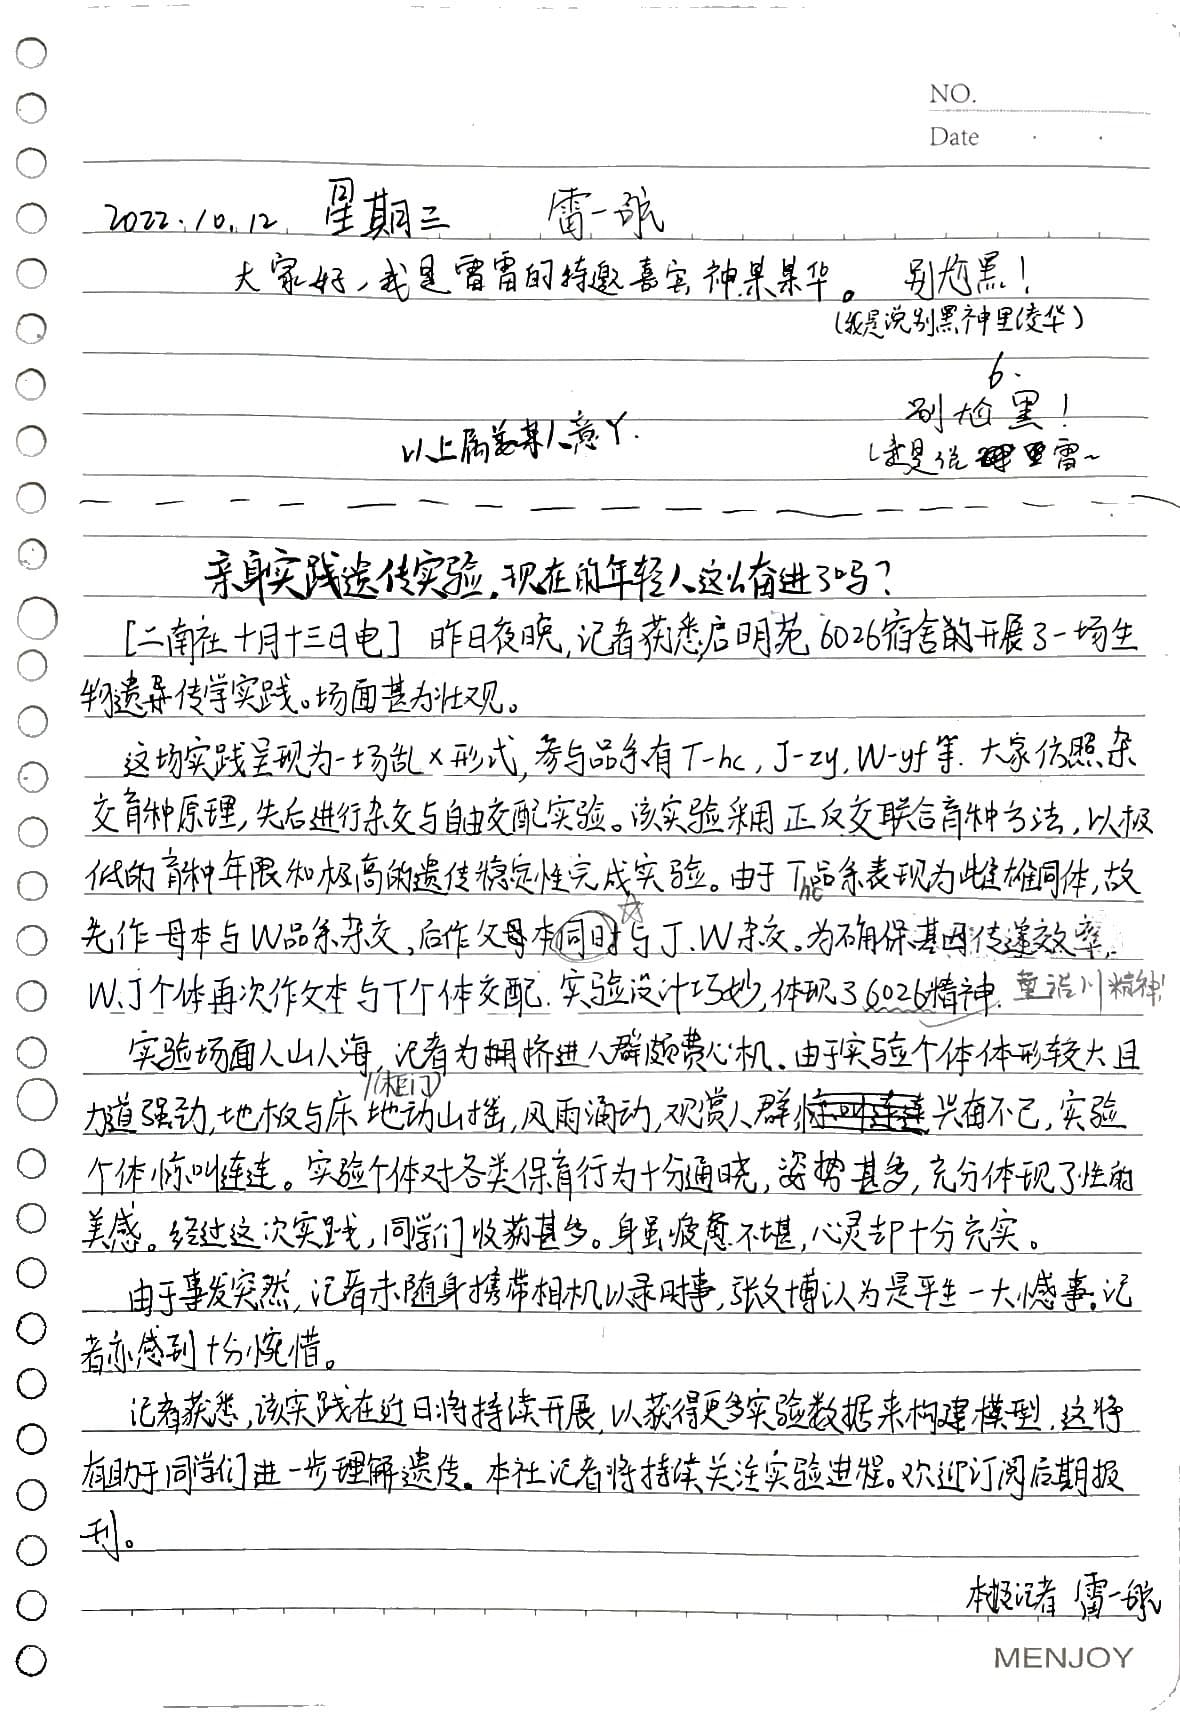 NO.
Date
2022.10.12 星期三 雷一航
大家好，我是雷雷的特邀嘉宾神果果华。 别尬黑！
（我是说别黑神里凌华）
6.
别尬黑！
以上属某人意丫.
亲身实践遗传实验，现在的年轻人这么奋进了吗？
[二南社十月十三日电] 昨日夜晚，记者获悉启明苑6026宿舍开展了一场生
物遗传学实践。场面甚为壮观。
这场实践呈现为一场乱×形式，参与品系有T-hc，J-zy，W-yf等．大家仿照杂
交育种原理，先后进行杂交与自由交配实验。该实验采用正反交联合育种方法，以极
低的育种年限和极高的遗传稳定性完成实验。由于Thc品系表现为雌雄同体，故
先作母本与W品系杂交，后作父母本同时与J.W杂交。为确保基因传递效率，
W.J个体再次作父本与T个体交配．实验设计巧妙，体现了6026精神．
实验场面人山人海，记者为拥挤进人群颇费心机．由于实验个体体形较大且
力道强劲，地板与床（柜门）地动山摇，风雨涌动，观赏人群兴奋不已，实验
个体惊叫连连。实验个体对各类保育行为十分通晓，姿势甚多，充分体现了性的
美感。经过这次实践，同学们收获甚多。身虽疲惫不堪，心灵却十分充实。
由于事发突然，记者未随身携带相机以录时事，张文博认为是平生一大憾事。记
者亦感到十分惋惜。
记者获悉，该实践在近日将持续开展，以获得更多实验数据来构建模型，这将
有助于同学们进一步理解遗传。本社记者将持续关注实验进程。欢迎订阅后期报
刊。
本报记者 雷一航
MENJOY